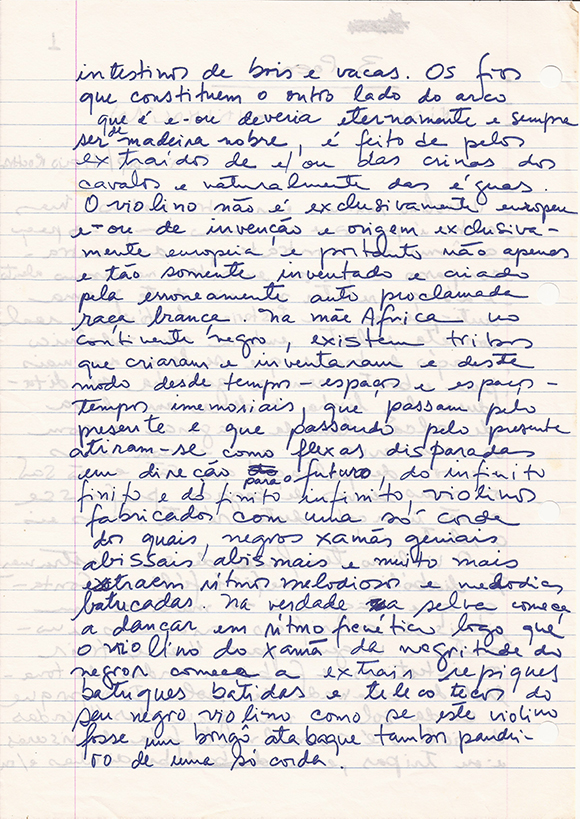 intestinos de bois e vacas. Os fios
que constituem o outro lado do arco
que é e-ou deveria eternamente e sempre
ser de madeira nobre, é feito de pelos
extraidos de e/ou das crinas dos
cavalos e naturalmente das éguas.
O violino não é exclusivamente europeu
e-ou de invenção e origem exclusiva-
mente europeia e portanto não apenas
e tão somente inventado e criado
pela erroneamente auto proclamada
raça branca. Na mãe Africa no
continente negro, existem tribos
que criaram e inventaram e deste
modo desde tempos-espaços e espaços-
tempos imemoriais, que passam pelo
presente e que passando pelo presente
atiram-se como flexas disparadas
em direção para o futuro, do infinito
finito e do finito infinito, violinos
fabricados com uma só corda
dos quais, negros xamãs geniais
abissais, abismais e muito mais
extraem ritmos melodiosos e melodias
batucadas. Na verdade a selva começa
a dançar em ritmo frenético logo que
o violino do xamã da negritude do
negror começa a extrair repiques
batuques batidas e telecotecos do
seu negro violino como se este violino
fosse um bongô atabaque tambor pandei-
ro de uma só corda.
1